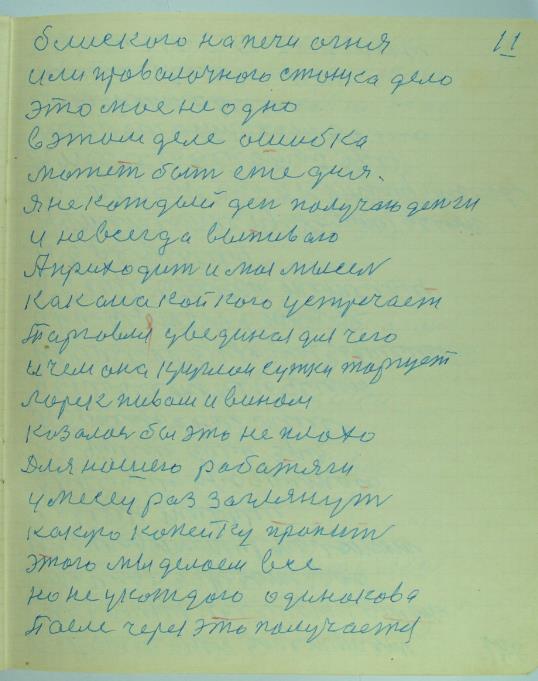 11
блиского на печи огня
или провалочного станка дело
это мое не одно
в этом деле ошибка
может быт стедия.
я не каждый ден получаю денги
и невсегда выпиваю
А приходит и мая мысел
как ана кой кого устречает
Тарговля уведина для чего
и чем она круглаи сутки торгует
ларек пивам и вином
козалоя бы это не плохо
Для нашего работяги
у месец раз заглянут
какую копейку пропит
этого мы делаем все
но не укаждого одинакова
После через это получается